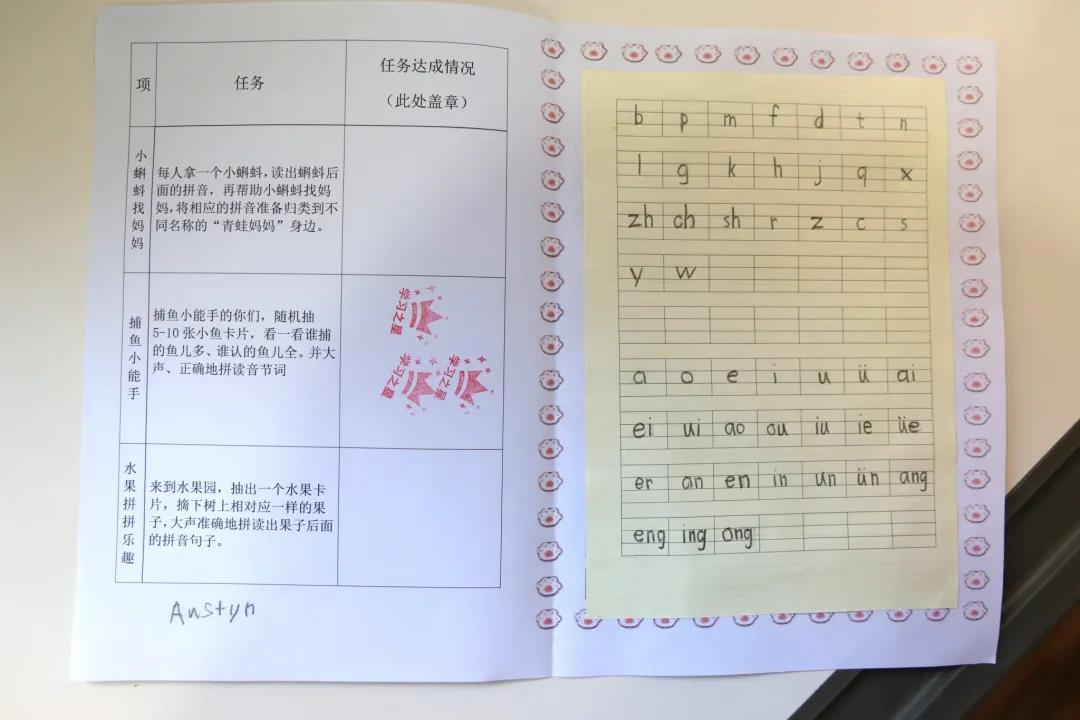 项
任务
任务达成情况
(此处盖章)
小
蝌
蚪
找
妈
妈
每人拿一个小蝌蚪,读出蝌蚪后
面的拼音,再帮助小蝌蚪找妈
妈,将相应的拼音准备归类到不
同名称的“青蛙妈妈”身边。
捕
鱼
小
能
手
捕鱼小能手的你们,随机抽
5-10 张小鱼卡片,看一看谁捕
的鱼儿多、谁认的鱼儿全。并大
声、正确地拼读音节词
学习之星
学习之星
学习之星
水
果
拼
拼
乐
趣
来到水果园,抽出一个水果卡
片,摘下树上相对应一样的果
子,大声准确地拼读出果子后面
的拼音句子。
Austyn
b p m f d t n
l g k h j q x
zh ch sh r z c s
y w
a o e i u ü ai
ei ui ao ou iu ie üe
er an en in un ün ang
eng ing ong